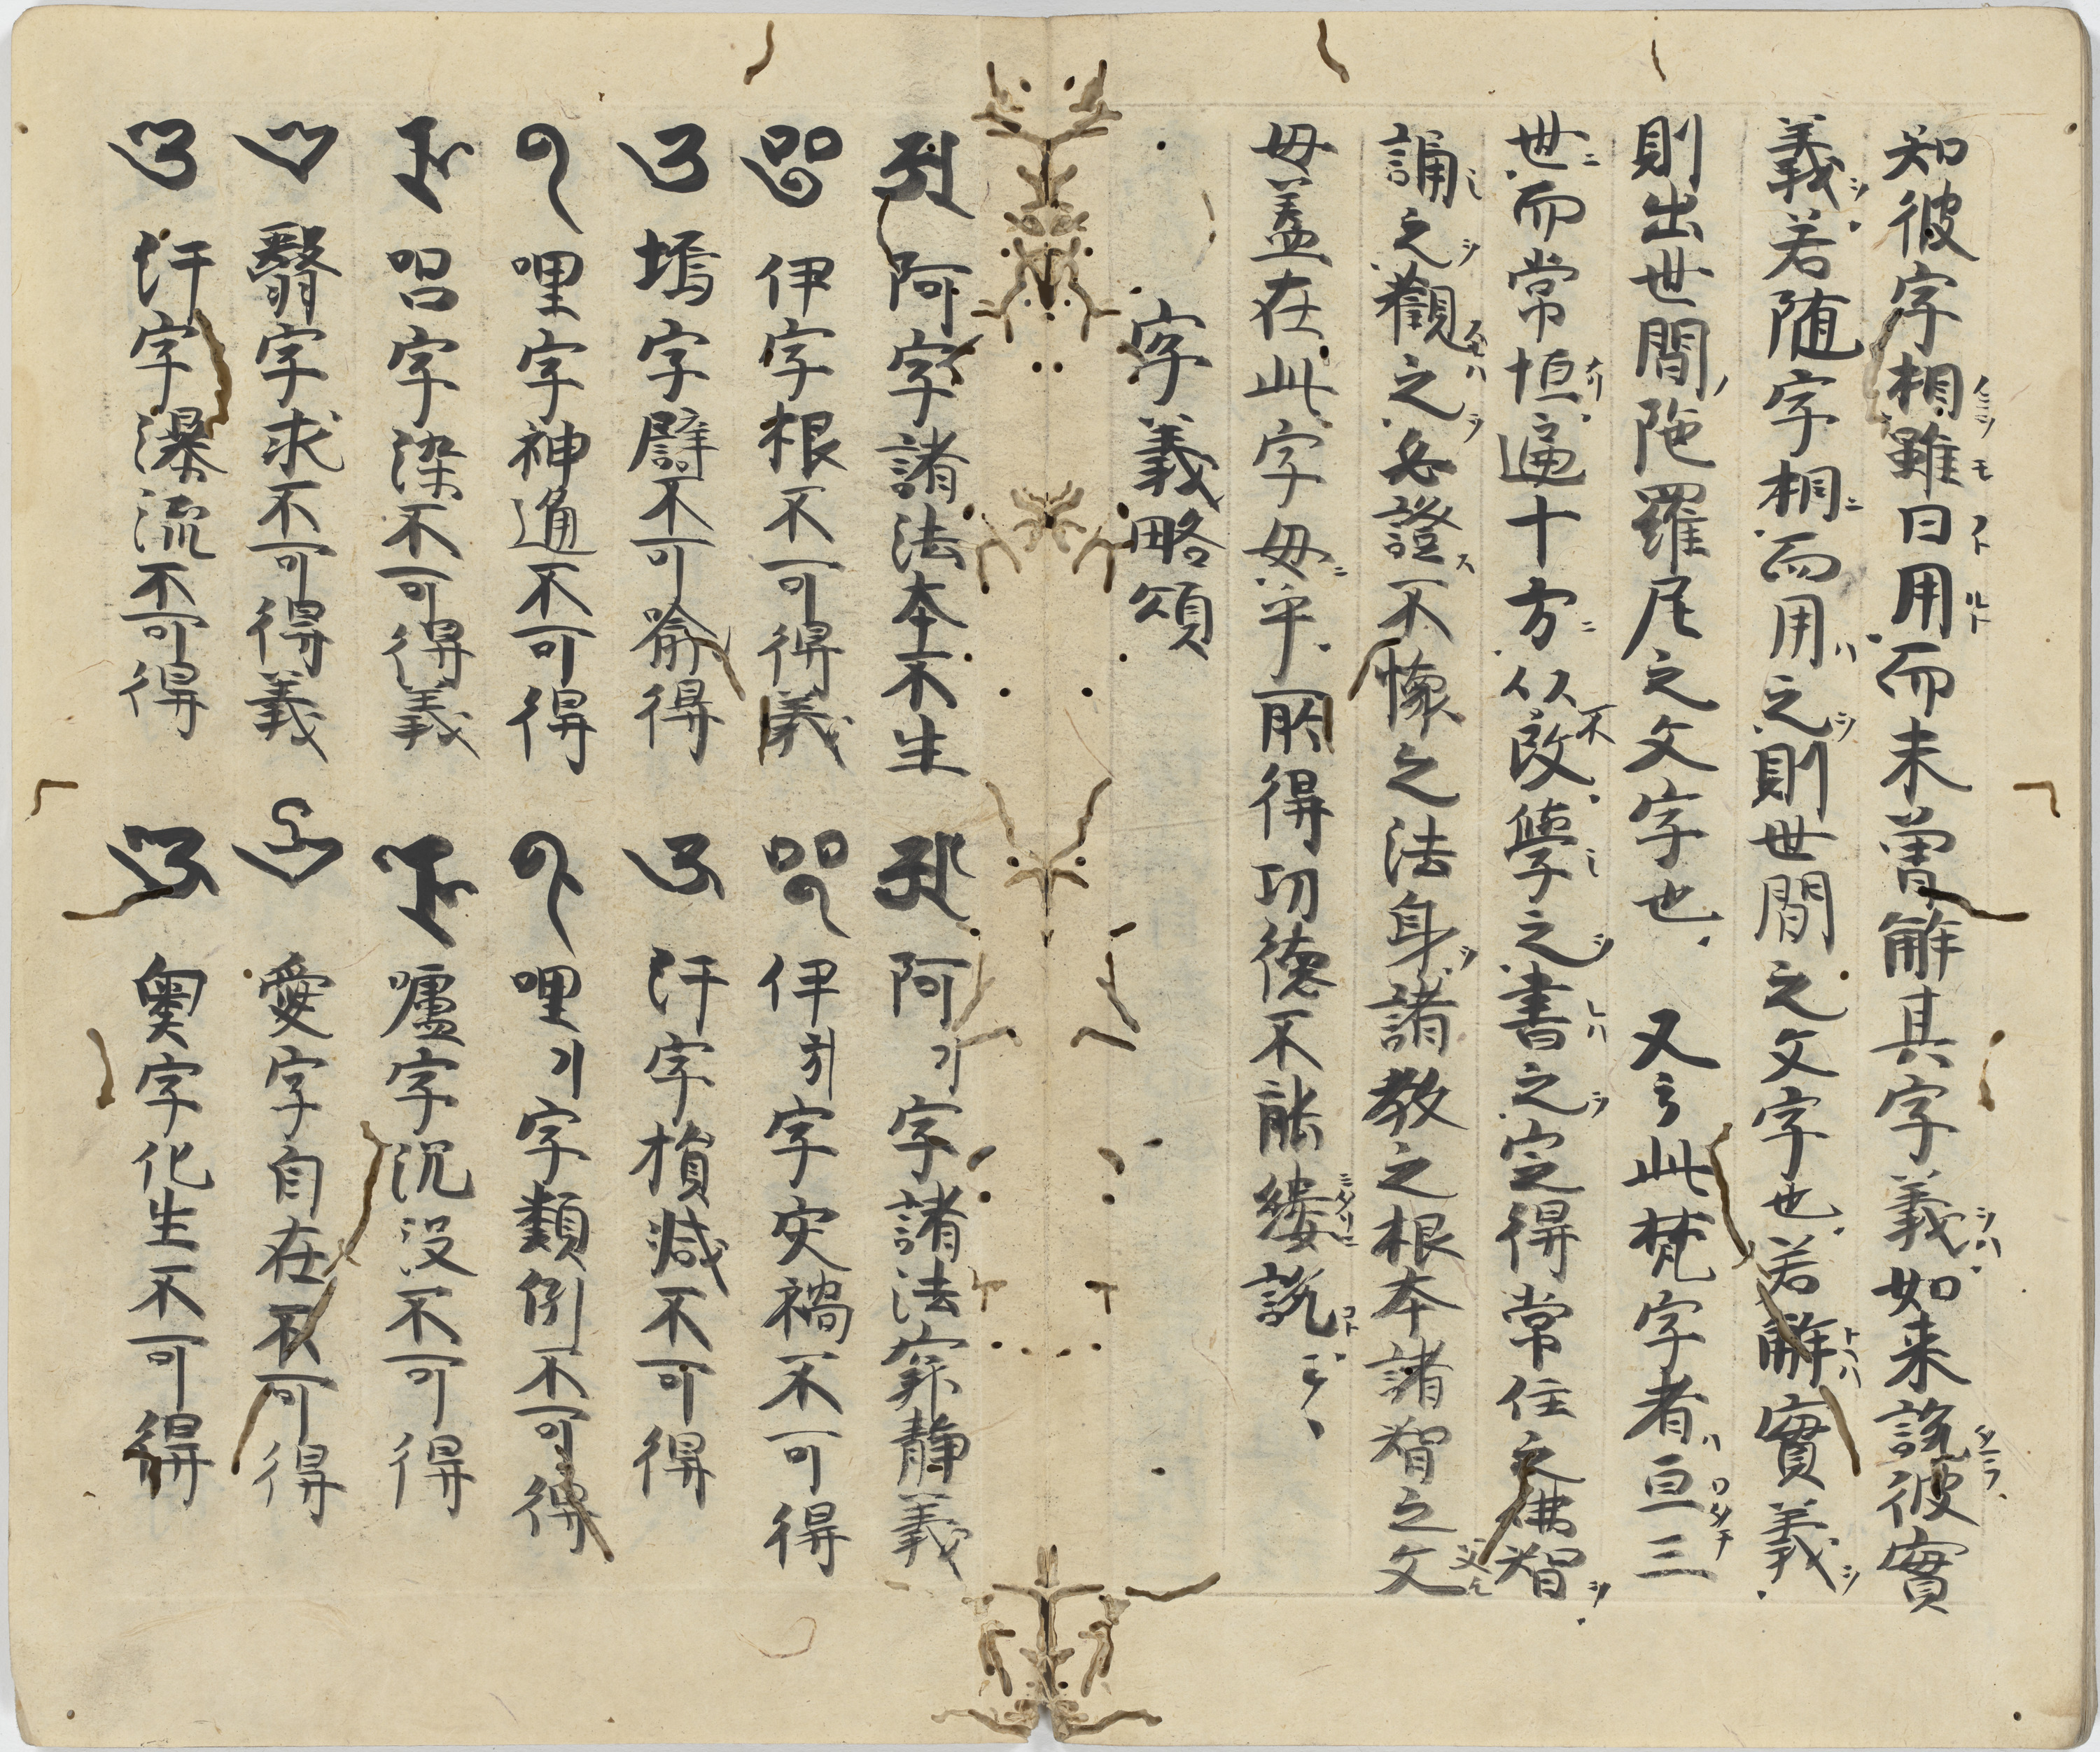 知彼字相雖日用而未曽解其字義如来説彼實
義若随字相而用之則世間之文字也若解實義
則出世間陁羅尼之文字也又云此梵字者亘三
世而常恒遍十方以不改學之書之定得常住之佛智
誦之觀之必證不懐之法身諸教之根本諸智之父
母蓋在此字母乎所得功徳不能縷説
字義略頌
𑖀 阿字諸法本不生 𑖁 阿引字諸法寂静義
𑖂 伊字根不可得義 𑖃 伊引字灾禍不可得
𑖄 塢字譬不可喩得 𑖅 汙字損减不可得
哩字神通不可得 哩引字類例不可得
𑖨 呂字染不可得義 嚧字沉没不可得
𑖊 翳字求不可得義 𑖋 愛字自在不可得
𑖌 汙字瀑流不可得 𑖍 奥字化生不可得